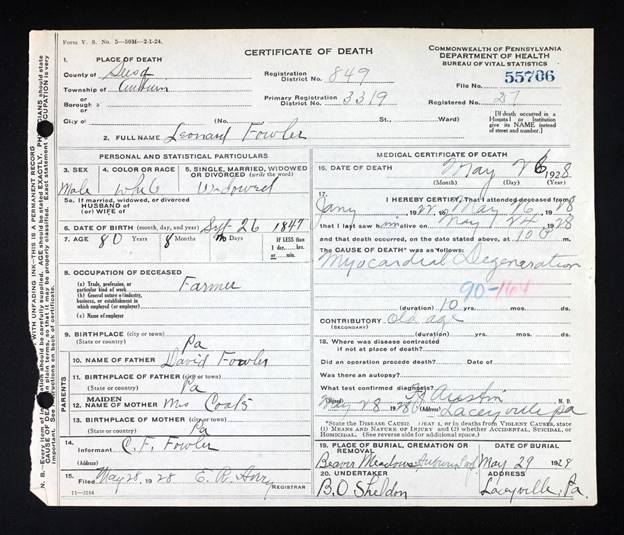 Form V. S. No. 5—50M—2-1-24.
CERTIFICATE OF DEATH
COMMONWEALTH OF PENNSYLVANIA
DEPARTMENT OF HEALTH
BUREAU OF VITAL STATISTICS
1. PLACE OF DEATH
County of Susq
Township of Auburn
or
Borough of
City of
Registration District No. 849
Primary Registration District No. 3319
File No. 55706
Registered No. 27
No. St. Ward)
[If death occurred in a Hospital or Institution give its NAME instead of street and number.]
2. FULL NAME Leonard Fowler
PERSONAL AND STATISTICAL PARTICULARS
3. SEX Male
4. COLOR OR RACE White
5. SINGLE, MARRIED, WIDOWED OR DIVORCED (write the word) Widowed
5a. If married, widowed, or divorced
HUSBAND of
(or) WIFE of
6. DATE OF BIRTH (month, day, and year) Sept 26 1847
7. AGE 80 Years 8 Months Days
If LESS than 1 day, hrs. or min.
8. OCCUPATION OF DECEASED
(a) Trade, profession, or particular kind of work Farmer
(b) General nature of industry, business, or establishment in which employed (or employer)
(c) Name of employer
9. BIRTHPLACE (city or town) Pa
(State or country)
PARENTS
10. NAME OF FATHER David Fowler
11. BIRTHPLACE OF FATHER (city or town) Pa
(State or country)
12. MAIDEN NAME OF MOTHER Mrs Coats
13. BIRTHPLACE OF MOTHER (city or town) Pa
(State or country)
14. Informant C. F. Fowler
(Address)
15. Filed May 28, 1928 E. R. REGISTRAR
11—3184
MEDICAL CERTIFICATE OF DEATH
16. DATE OF DEATH May 26 1928
(Month) (Day) (Year)
17. I HEREBY CERTIFY, That I attended deceased from
Jany 19 to May 1928
that I last saw him alive on May 24 1928
and that death occurred, on the date stated above, at 10
The CAUSE OF DEATH* was as follows:
Myocardial Degeneration
90-164
(duration) 10 yrs. mos. ds.
CONTRIBUTORY (SECONDARY) Old age
(duration) yrs. mos. ds.
18. Where was disease contracted
if not at place of death?
Did an operation precede death? Date of
Was there an autopsy?
What test confirmed diagnosis?
(Signed) Austin M. D.
May 28 1928 (Address) Laceyville Pa
*State the Disease Causing Death, or in deaths from Violent Causes, state (1) Means and Nature of Injury and (2) whether Accidental, Suicidal or Homicidal. (See reverse side for additional space.)
19. PLACE OF BURIAL, CREMATION OR REMOVAL
Beaver Meadows
DATE OF BURIAL
May 29 1928
20. UNDERTAKER
B. O Sheldon
ADDRESS
Laceyville, Pa.